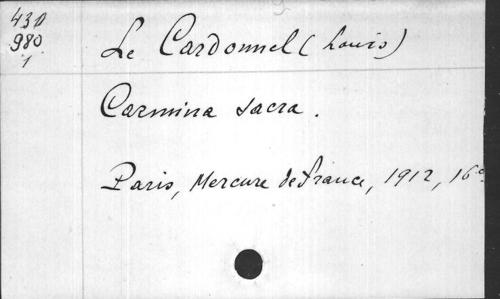 431
980
1
Le Cardonnel (Louis)
Carmina sacra.
Paris, Mercure de France, 1912, 16°